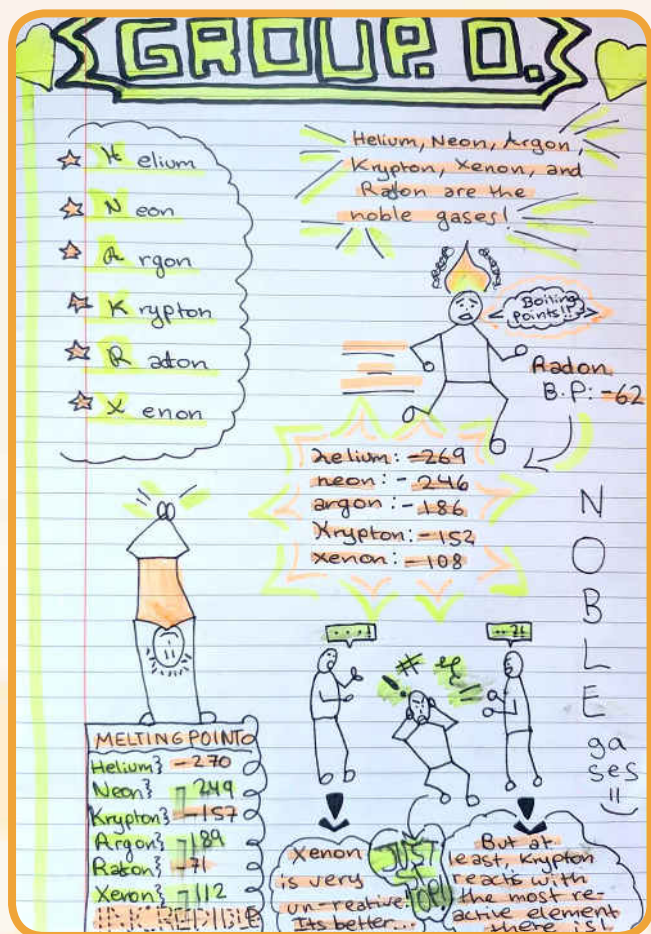 GROUP. O.
Helium
Neon
Argon
Krypton
Radon
Xenon
Helium, Neon, Argon,
Krypton, Xenon, and
Radon are the
noble gases!
Boiling
Points!!
Radon
B.P: -62
helium: -269
neon: -246
argon: -186
Krypton: -152
xenon: -108
NOBLE
ga
ses
MELTING POINT
Helium} -270
Neon} -249
Krypton} -157
Argon} -189
Radon} -71
Xenon} -112
INKREDIBLE
Xenon
is very
un-reative!
Its better...
JUST
STOP!
But at
least, Krypton
reacts with
the most re-
active element
there is!